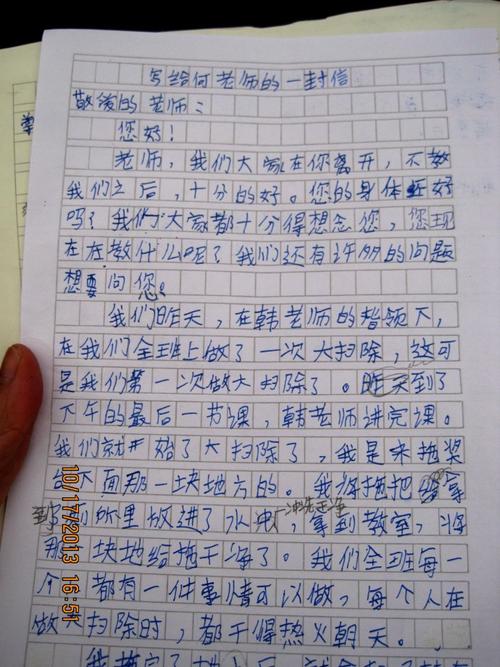 写给何老师的一封信
敬爱的老师：
您好！
老师，我们大家在你离开，不教
我们之后，十分的好。您的身体还好
吗？我们大家都十分得想念您，您现
在在教什么呢？我们还有许多的问题
想要问您。
我们昨天，在韩老师的带领下，
在我们全班上做了一次大扫除，这可
是我们第一次做大扫除了。昨天到了
下午的最后一节课，韩老师讲完课。
我们就开始了大扫除了，我是来拖奖
台下面那一块地方的。我将拖把拿
到厕所里放进了水中，冲洗干净拿到教室，将
那一块地给拖干净了。我们全班每一
个 都有一件事情可以做，每个人在
做大扫除时，都干得热火朝天。
10/17/2013 16:51